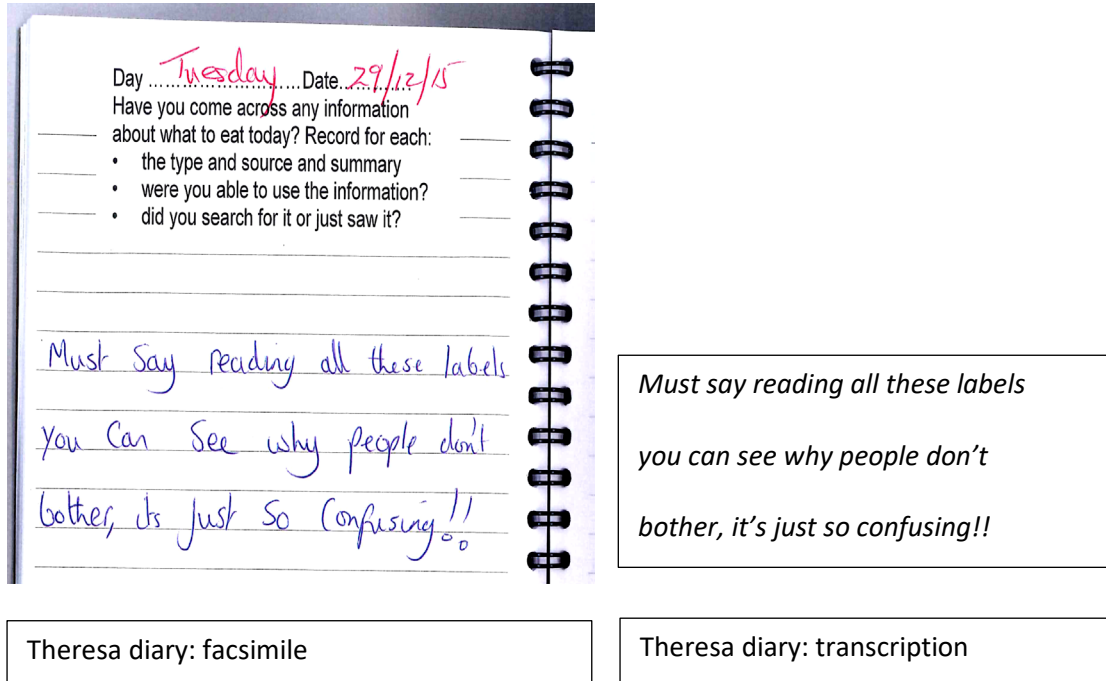 Day ........Tuesday........Date..29/12/15
Have you come across any information
about what to eat today? Record for each:
• the type and source and summary
• were you able to use the information?
• did you search for it or just saw it?
Must Say reading all these labels
you Can See why people don't
bother, its just so Confusing!!
Must say reading all these labels
you can see why people don't
bother, it's just so confusing!!
Theresa diary: facsimile
Theresa diary: transcription